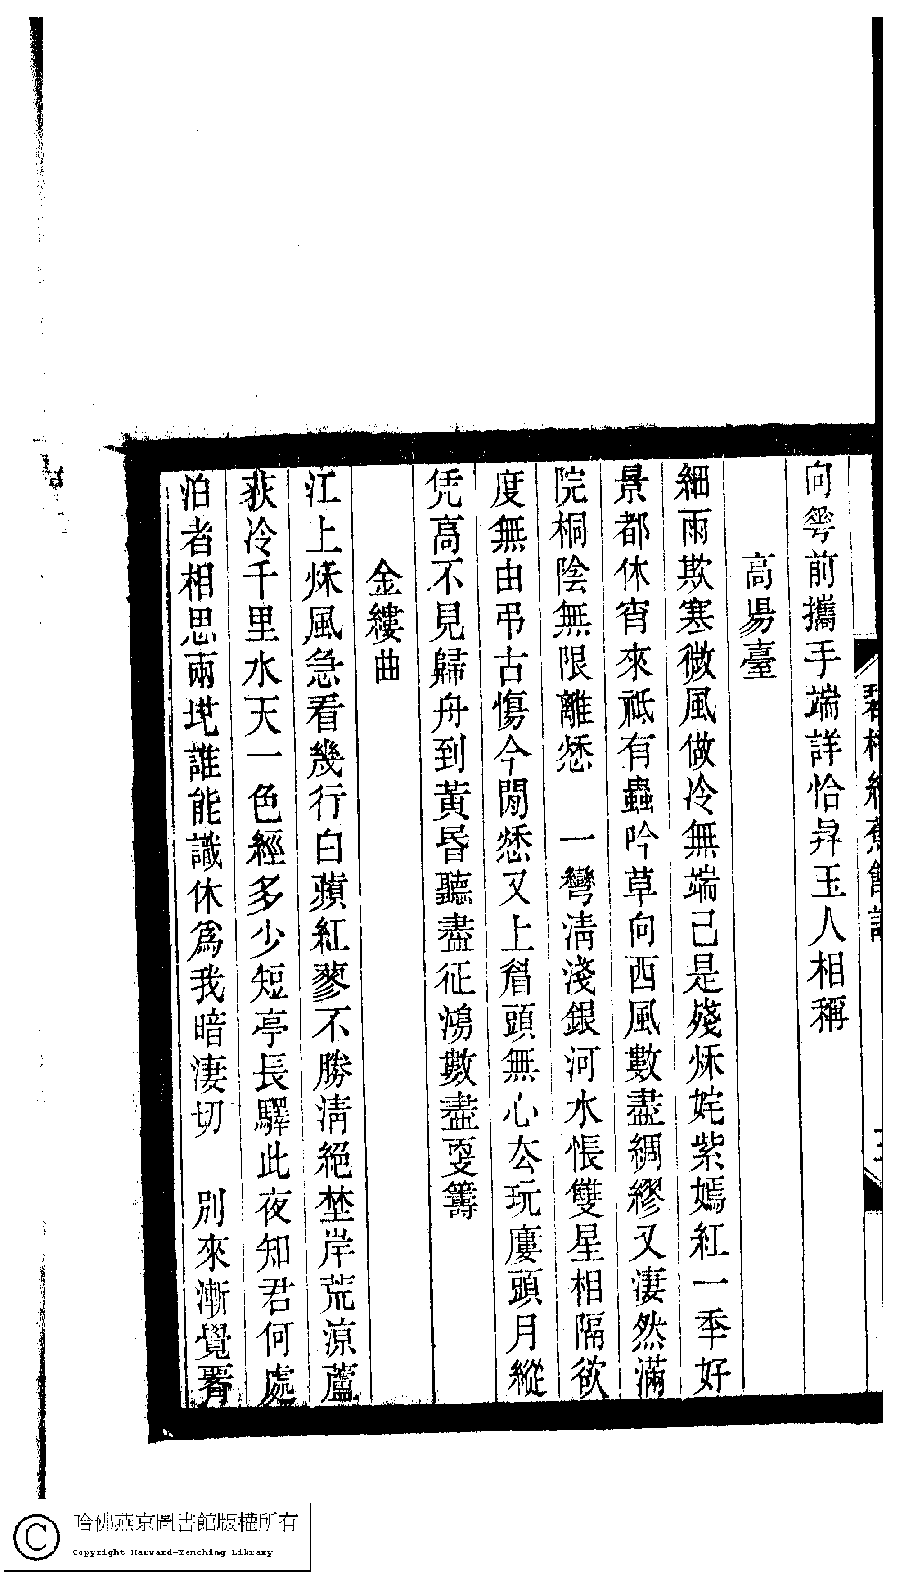 向䔢前攜手端詳恰昇玉人相稱
高昜臺
細雨欺寒微風做冷無端已是殘秌妊紫嫣紅一秊好
景都休宵來祗有蟲吟草向西風數盡綢繆又淒然滿
院桐陰無限離愁　一彎清淺銀河水悵雙星相隔欲
度無由弔古傷今閒愁又上眉頭無心厺玩廔頭月縱
凭高不見歸舟到黃昏聽盡征鴻數盡更籌
金縷曲
江上秌風急看幾行白蘋紅蓼不勝清絕埜岸荒涼蘆
荻冷千里水天一色經多少短亭長驛此夜知君何處
泊者相思兩地誰能識休為我暗淒切　別來漸覺
哈佛燕京圖書館版權所有
Copyright Harvard-Yenching Library